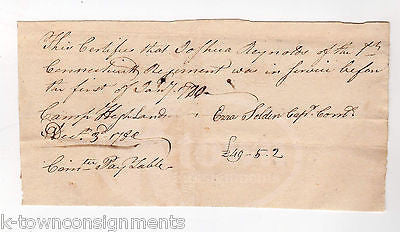 This Certifies that Joshua Reynolds of the 7th
Connecticutt Regiment was in Service before
the first of Jany 1780
Camp Highland
Ezra Selden Capt. Comdt
Decr. 3d 1780
£49-5-2
Comtee Pay Table
k-townconsignments.com